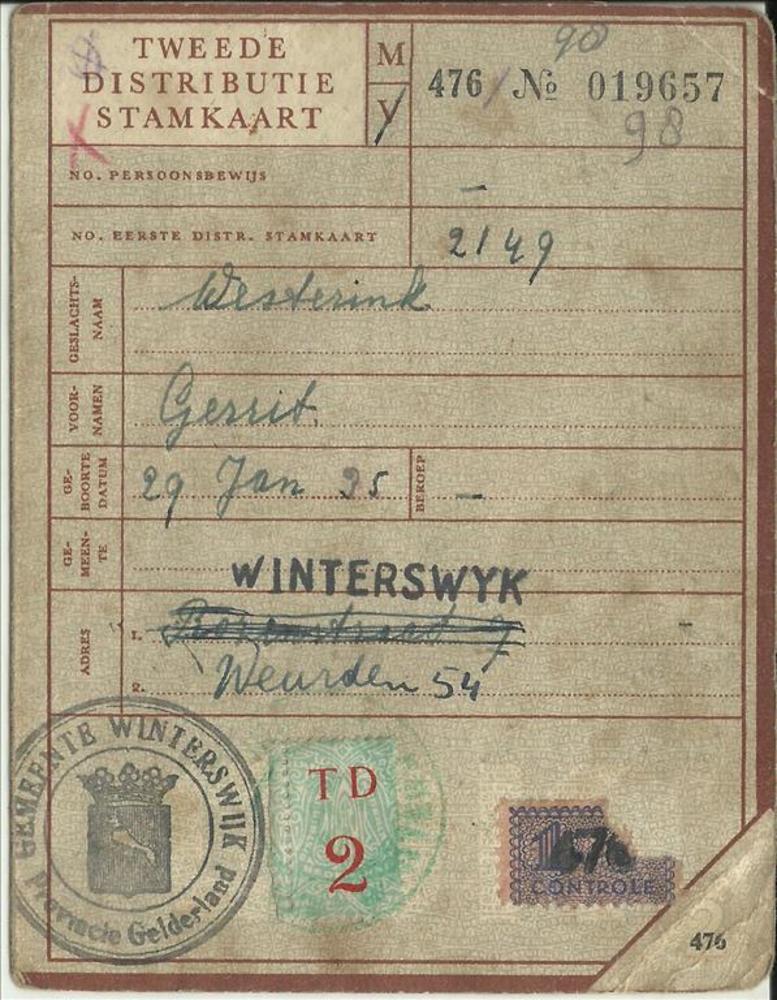 TWEEDE
DISTRIBUTIE
STAMKAART
M
V
476 No 019657
98
98
NO. PERSOONSBEWIJS –
NO. EERSTE DISTR. STAMKAART 2149
GESLACHTS-
NAAM
Westerink
VOOR-
NAMEN
Gerrit
GE-
BOORTE
DATUM
29 Jan 35
BEROEP
–
GE-
MEEN-
TE
WINTERSWYK
ADRES
1.
2. Weurden 54
GEMEENTE WINTERSWIJK
Provincie Gelderland
TD
2
476
CONTROLE
476